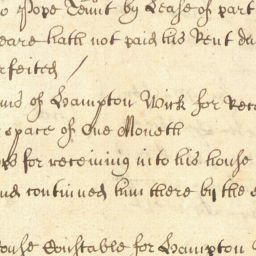 o Pope Tennt by Lease of part
eare hath not paid his Rent du
rfeited
ms of Hampton Wick for Rece
space of One Moneth
rs for receiving into his house
and continued him there by the
ouse Constable for Hampton